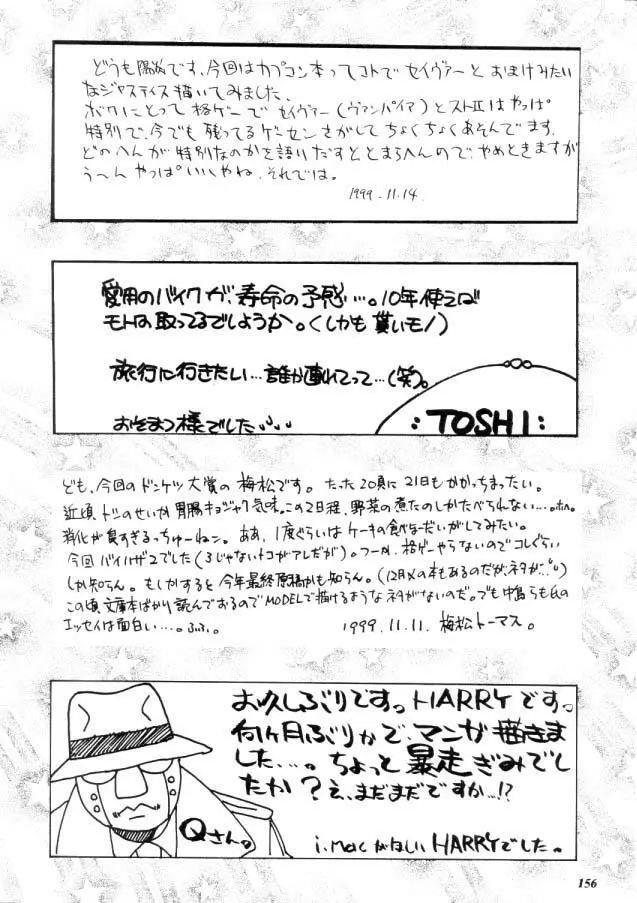 どうも陽炎です、今回はカプコン本ってコトでセイヴァーとおまけみたい
なジャスティス描いてみました。
ボクにとって格ゲーでセイヴァー(ヴァンパイア)とストIIはやっぱ
特別で、今でも残ってるゲーセンさがしてちょくちょくあそんでます。
どのへんが特別なのかを語りだすととまらへんので、やめときますが
う〜んやっぱいいやね、それでは。
1999.11.14
愛用のバイクが、寿命の予感…。10年使えば
モトは取ってるでしょうか。(しかも貰いモノ)
旅行に行きたい…誰か連れてって…(笑)。
おそまつ様でした
:TOSHI:
ども、今回のドンケツ大賞の梅松です。たった20頁に21日もかかっちまったい。
近頃、トシのせいか胃腸キョジャク気味。この2日程、野菜の煮たのしかたべられない…。
消化が良すぎるっちゅーねン。ああ、1度ぐらいはケーキの食べほーだいがしてみたい。
今回バイハザ2でした(3じゃないトコがアレだが)。つーか、格ゲーやらないのでコレぐらい
しか知らん。もしかすると今年最終原稿かも知らん。(12月〆の本もあるのだが、ネタが…)
この頃、文庫本ばかり読んでおるのでMODELで描けるようなネタがないのだ。でも中島らも氏の
エッセイは面白い…。ふふ。
1999.11.11. 梅松トーマス。
お久しぶりですっHARRYですっ
何ヶ月ぶりかで、マンガ描きま
した…。ちょっと暴走ぎみでし
たか?え、まだまだですか…!?
Qさん。
i.macがほしいHARRYでした。
156